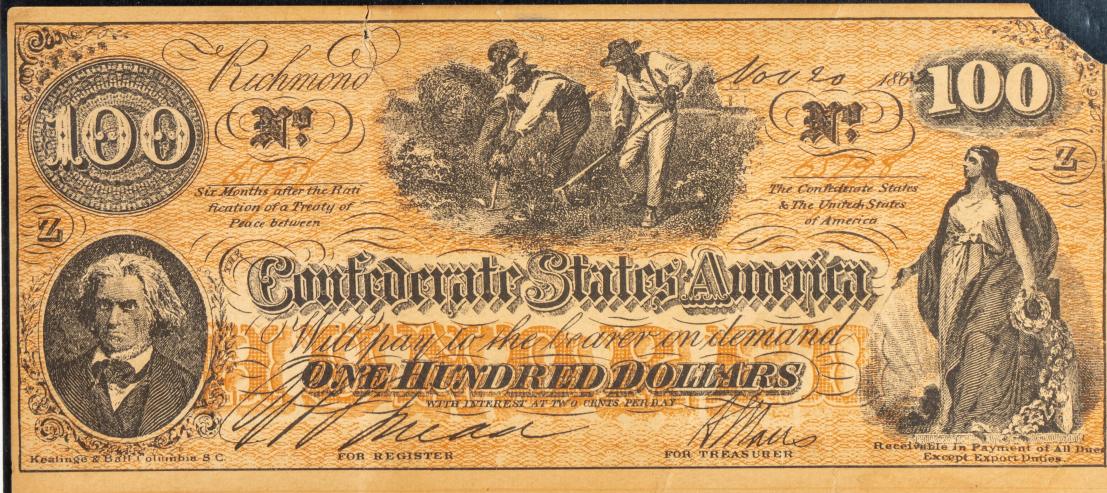 Richmond Nov 20 186
100
100
No
No
65798
Six Months after the Rati
fication of a Treaty of
Peace between
The Confederate States
& The United States
of America
Z
Z
Confederate States America
Will pay to the bearer on demand
ONE HUNDRED DOLLARS
WITH INTEREST AT TWO CENTS PER DAY
FOR REGISTER
FOR TREASURER
Keatinge & Ball Columbia S C.
Receivable in Payment of All Dues
Except Export Duties.